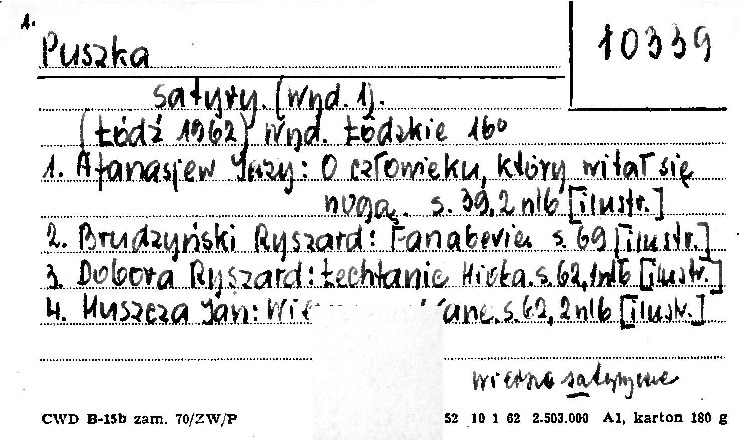 1.
Puszka
10339
satyry. (Wyd. 1).
(Łódź 1962) Wyd. Łódzkie 16°
1. Afanasjew Jerzy: O człowieku, który witał się
nogą. s. 39, 2 nlb [ilustr.]
2. Brudzyński Ryszard: s. 69 [ilustr.]
3. Dobora Ryszard: Łechtanie s. 62, 1 nlb [ilustr.]
4. Huszcza Jan: s. 62, 2 nlb [ilustr.]
wiersze satyryczne
CWD B-15b zam. 70/ZW/P 52 10 1 62 2.503.000 A1, karton 180 g